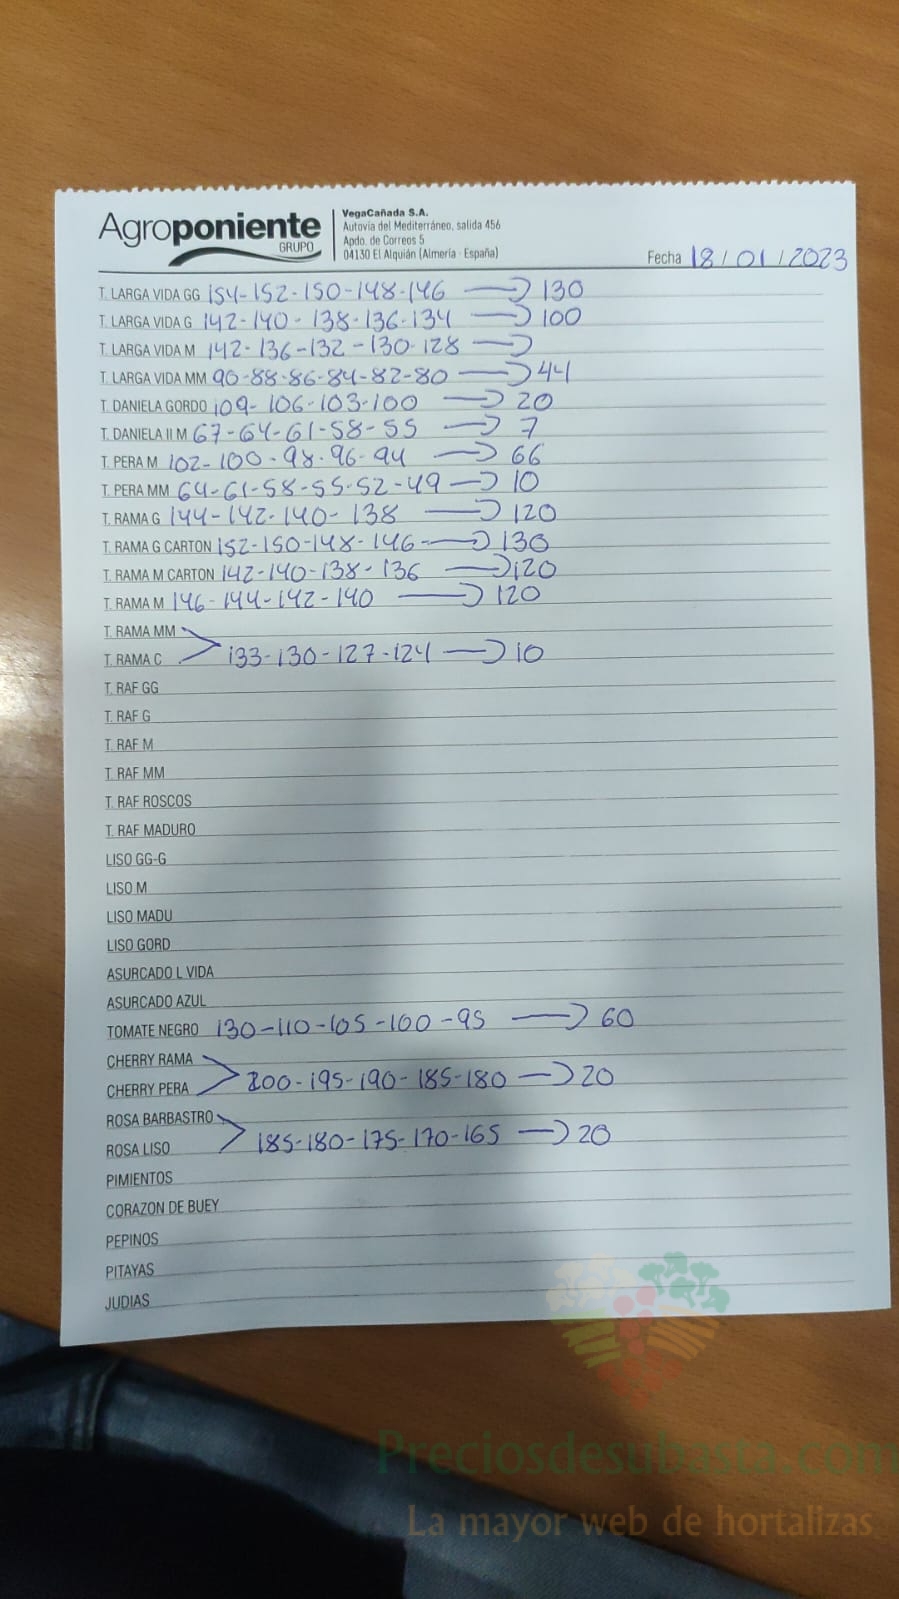 Agroponiente
GRUPO
VegaCañada S.A.
Autovía del Mediterráneo, salida 456
Apdo. de Correos 5
04130 El Alquián (Almería - España)
Fecha 18/01/2023
T. LARGA VIDA GG 154-152-150-148-146 → 130
T. LARGA VIDA G 142-140-138-136-134 → 100
T. LARGA VIDA M 142-136-132-130-128 →
T. LARGA VIDA MM 90-88-86-84-82-80 → 44
T. DANIELA GORDO 109-106-103-100 → 20
T. DANIELA II M 67-64-61-58-55 → 7
T. PERA M 102-100-98-96-94 → 66
T. PERA MM 64-61-58-55-52-49 → 10
T. RAMA G 144-142-140-138 → 120
T. RAMA G CARTON 152-150-148-146 → 130
T. RAMA M CARTON 142-140-138-136 → 120
T. RAMA M 146-144-142-140 → 120
T. RAMA MM
T. RAMA C 133-130-127-124 → 10
T. RAF GG
T. RAF G
T. RAF M
T. RAF MM
T. RAF ROSCOS
T. RAF MADURO
LISO GG-G
LISO M
LISO MADU
LISO GORD
ASURCADO L VIDA
ASURCADO AZUL
TOMATE NEGRO 130-110-105-100-95 → 60
CHERRY RAMA
CHERRY PERA 200-195-190-185-180 → 20
ROSA BARBASTRO
ROSA LISO 185-180-175-170-165 → 20
PIMIENTOS
CORAZON DE BUEY
PEPINOS
PITAYAS
JUDIAS
Preciosdesubasta.com
La mayor web de hortalizas